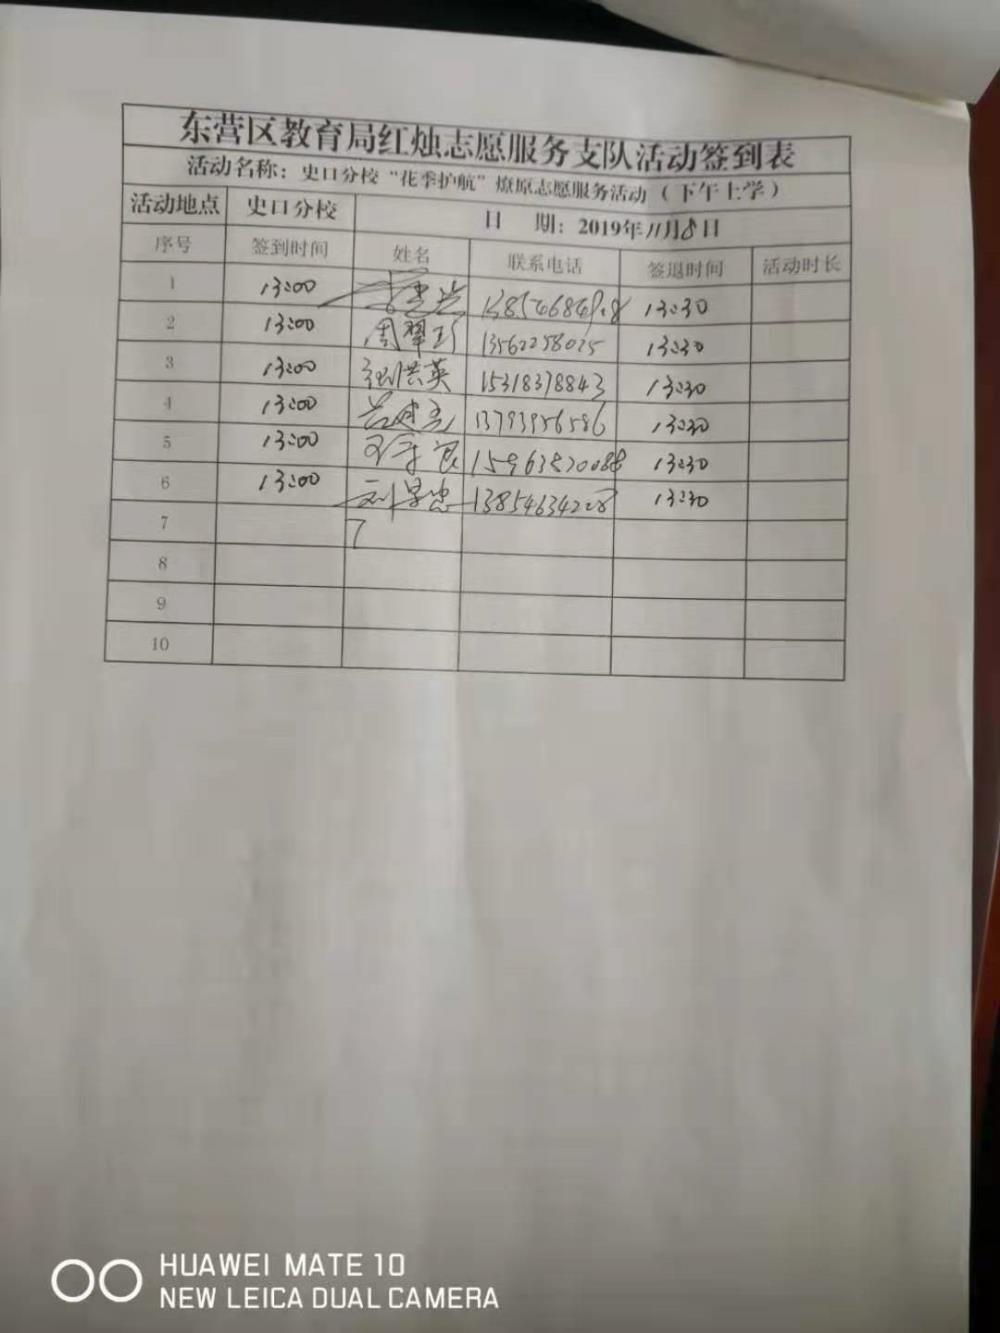 东营区教育局红烛志愿服务支队活动签到表
活动名称：史口分校“花季护航”燎原志愿服务活动（下午上学）
活动地点 史口分校 日 期：2019年11月8日
序号 签到时间 姓名 联系电话 签退时间 活动时长
1 13:00 13:30
2 13:00 周翠 13562258025 13:30
3 13:00 洪英 15318378843 13:30
4 13:00 13793956586 13:30
5 13:00 王 15963820088 13:30
6 13:00 刘 忠 13854634208 13:30
7
8
9
10
HUAWEI MATE 10
NEW LEICA DUAL CAMERA